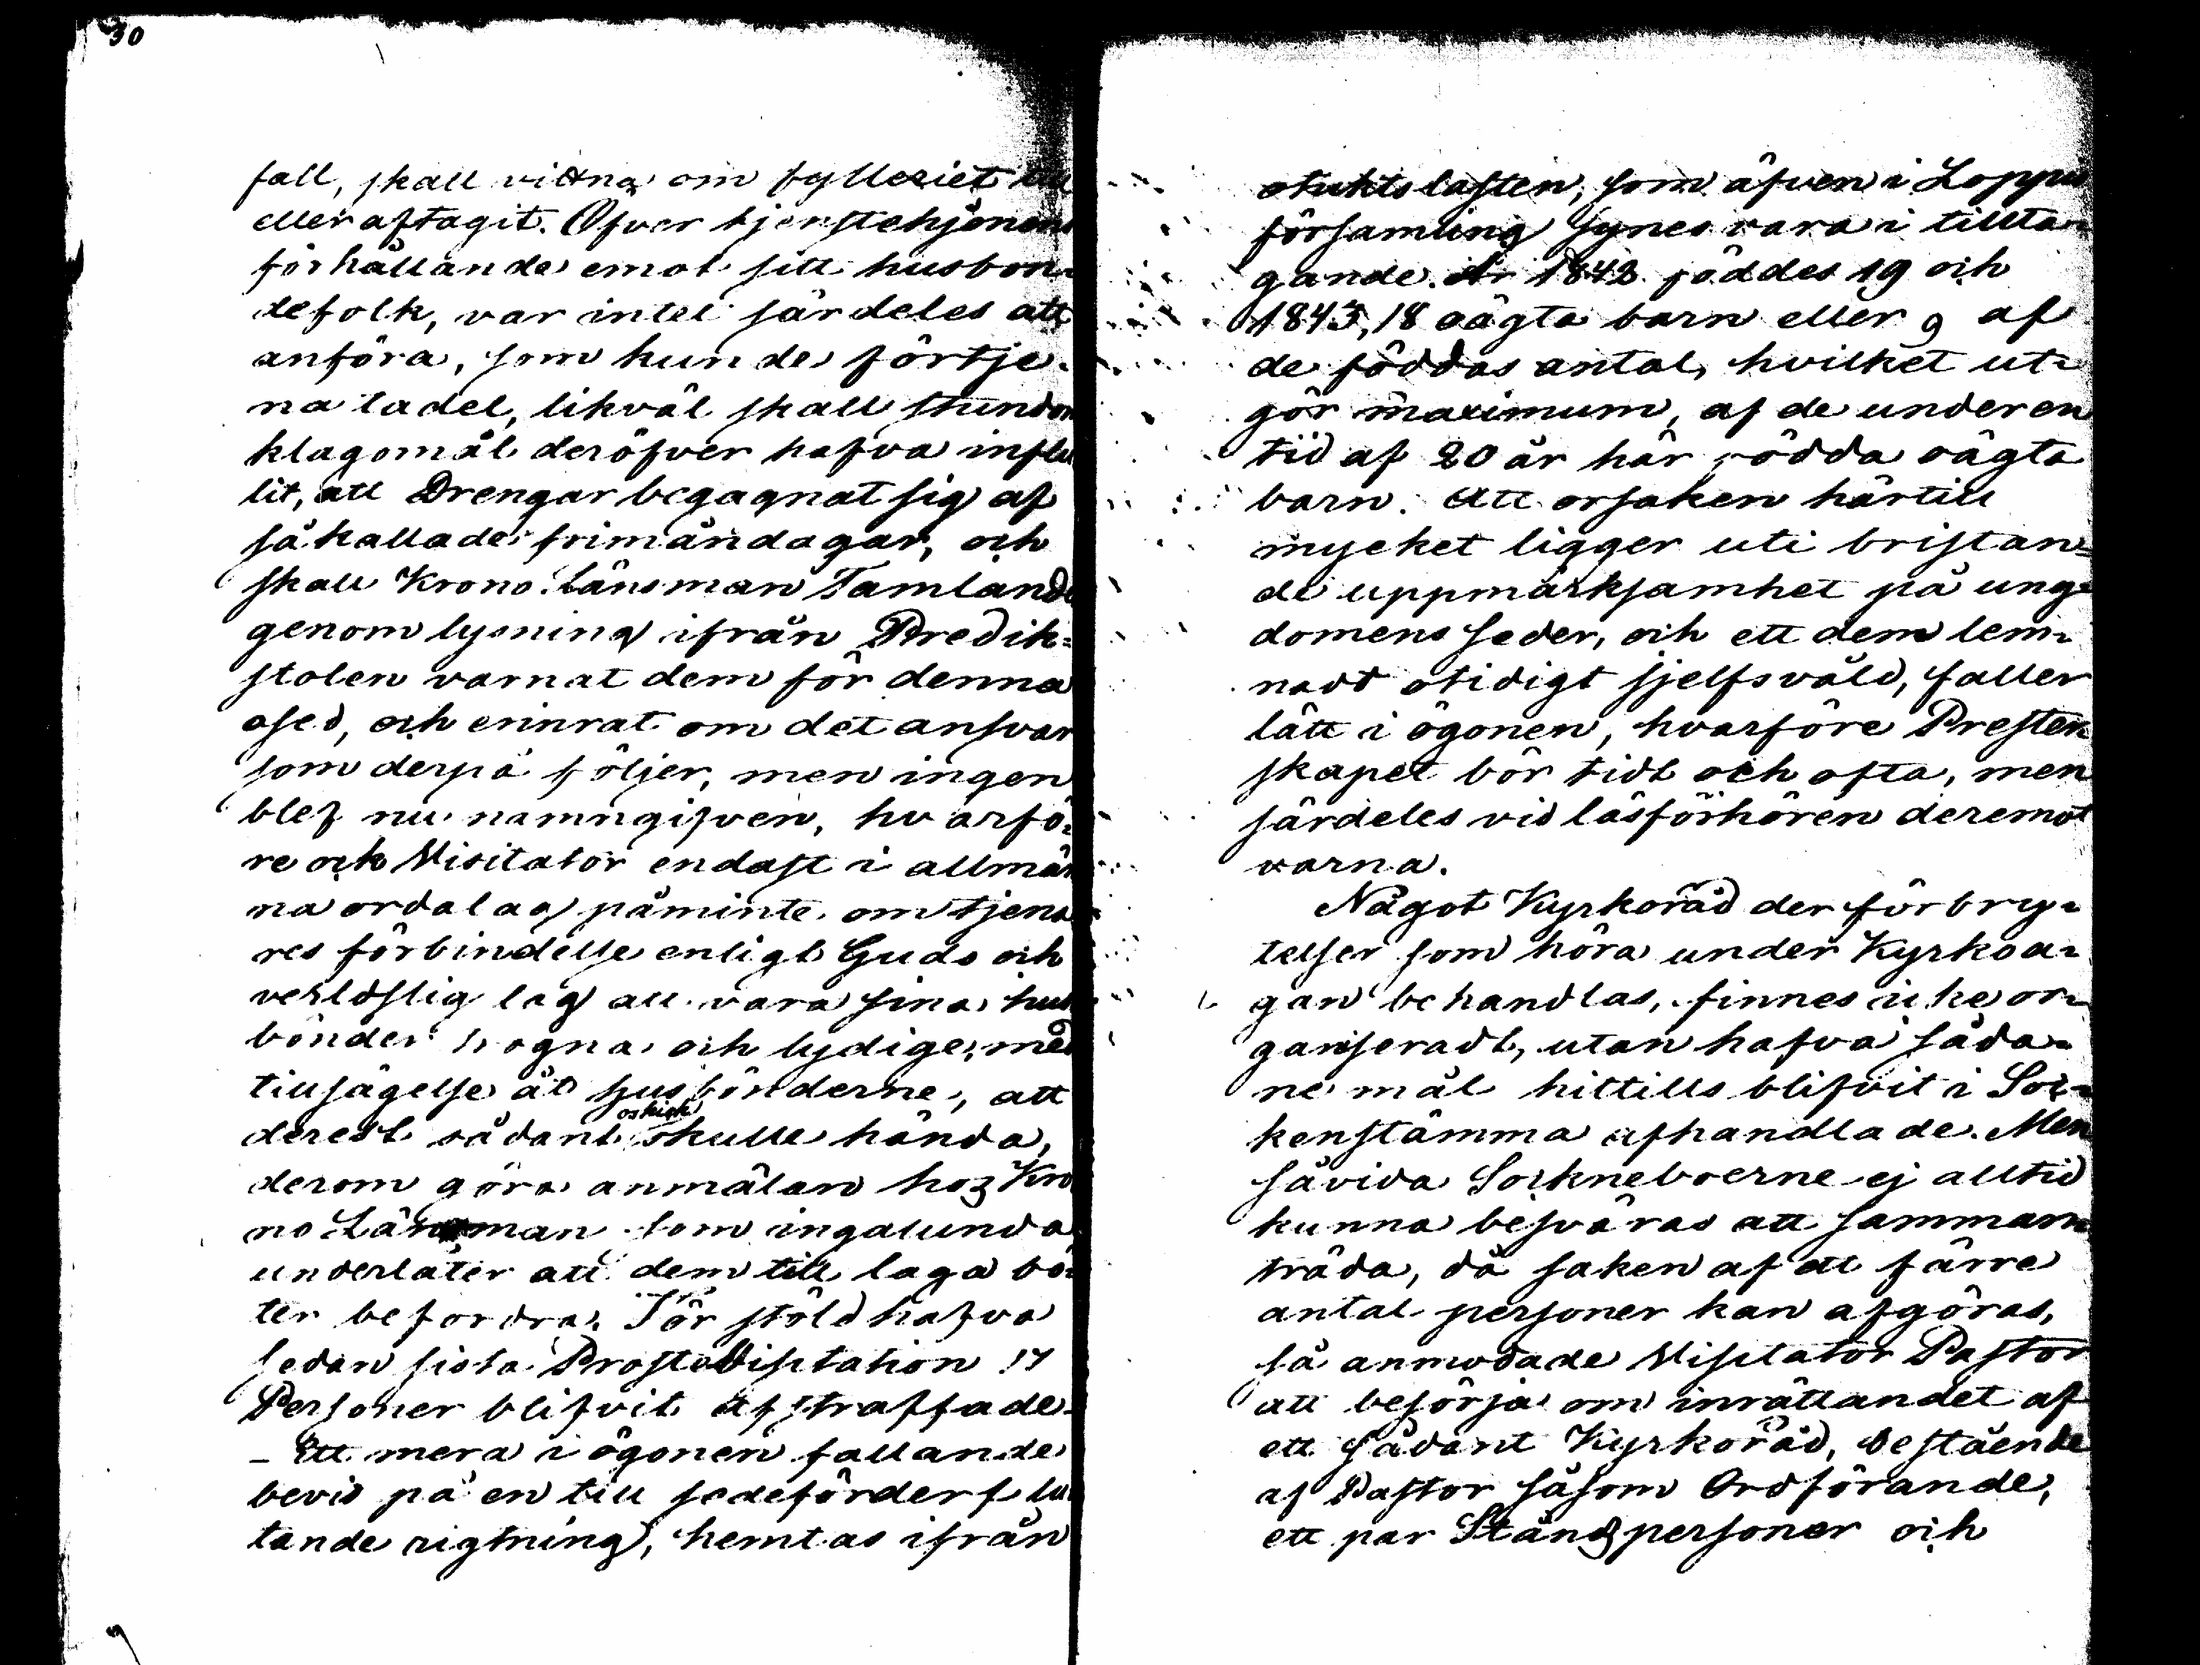 30
fall, skall vittna om fylleriet
eller aftagit. Öfver tjenstehjonens
förhållande emot sitt husbon=
defolk, var intet särdeles att
anföra, som kunde förtje=
na tadel, likväl skall stundom
klagomål deröfver hafva influ
tit, att Drengar begagnat sig af
så kallade frimåndagar, och
skall Krono Länsman Tamlander
genom lysning ifrån Predik=
stolen varnat dem för denna
osed, och erinrat om det ansvar
som derpå följer, men ingen
blef nu namngifven, hvarfö=
re och Visitator endast i allmän
na ordalag påminte om tjena
res förbindelse enligt Guds och
verldslig lag att vara sina hus
bönder trogna och lydige, med
tillsägelse åt husbönderne, att
derest sådant oskick skulle hända,
derom göra anmälan hos Kro
no Länsman som ingalunda
underlåter att dem till laga bö=
ter befordra. För stöld hafva
sedan sista Prostevisitation 17
Personer blifvit afstraffade.
– Ett mera i ögonen fallande
bevis på en till sedeförderf lu
tande rigtning, hemtas ifrån
otuktslasten, som äfven i Loppis
församling synes vara i tillta=
gande. År 1842 föddes 19 och
1843, 18 oägta barn eller 9 af
de föddas antal, hvilket ut=
gör maximum, af de under en
tid af 20 år här födda oägta
barn. Att orsaken härtill
mycket ligger uti bristan=
de uppmärksamhet på ung=
domens seder, och ett dem lem=
nadt otidigt sjelfsvåld, faller
lätt i ögonen, hvarföre Prester
skapet bör tidt och ofta, men
särdeles vid läsförhören deremot
varna.
Något Kyrkoråd der förbry=
telser som höra under Kyrkoa=
gan behandlas, finnes icke or=
ganiseradt, utan hafva såda=
ne mål hittills blifvit i Soc=
kenstämma afhandlade. Men
såvida Sockneboerne ej alltid
kunna besväras att samman
träda, då saken af ett färre
antal personer kan afgöras,
så anmodade Visitator Pastor
att besörja om inrättandet af
ett sådant Kyrkoråd, bestående
af Pastor såsom Ordförande,
ett par Ståndspersoner och